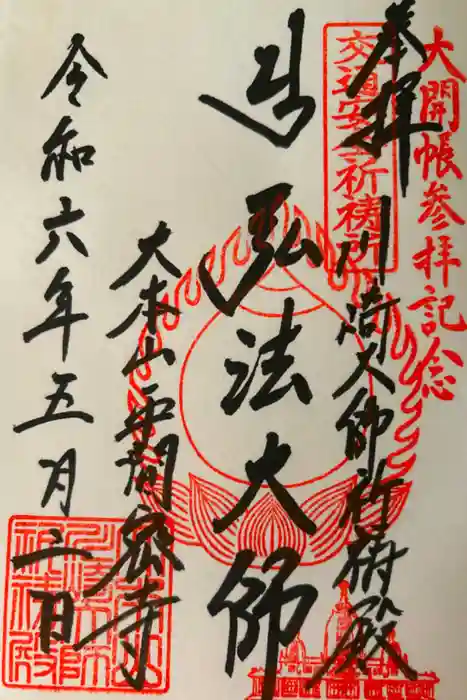 大開帳参拝記念
奉拝
交通安全祈祷所
川崎大師祈祷殿
遍弘法大師
大本山平間密寺
令和六年五月二日